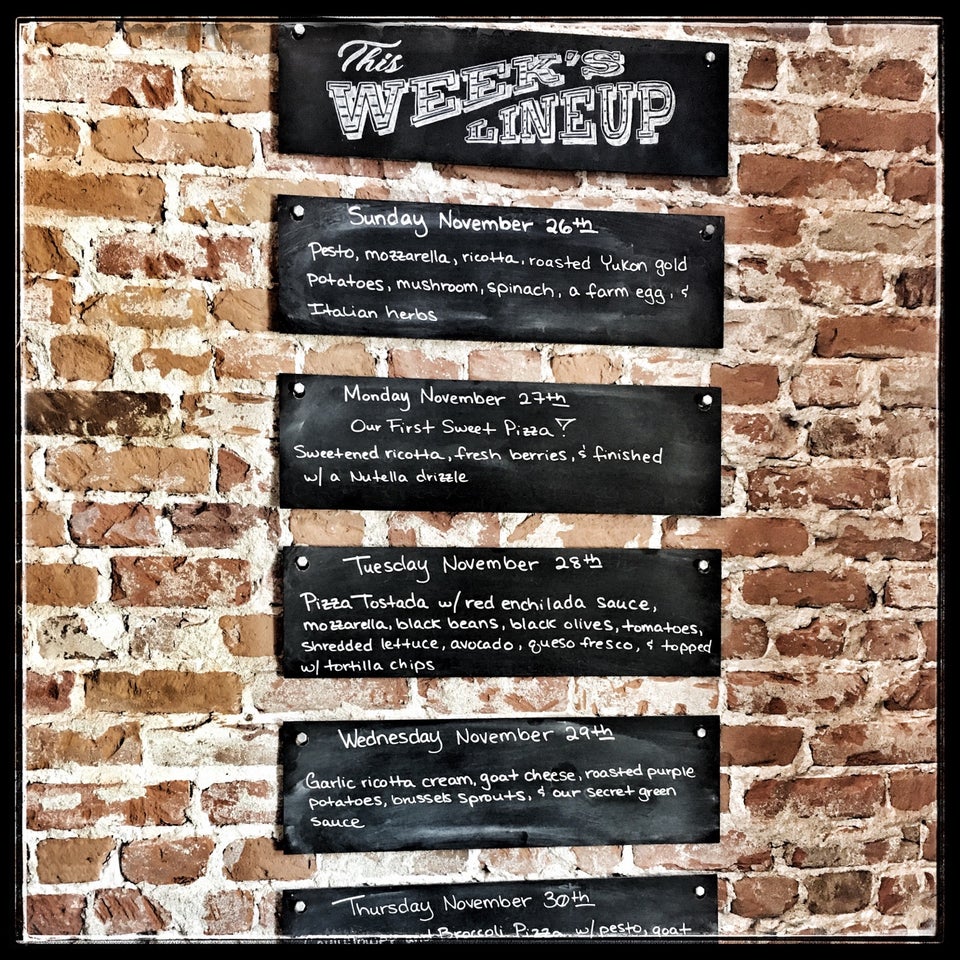 This
WEEK'S
LINEUP
Sunday November 26th
Pesto, mozzarella, ricotta, roasted Yukon gold
potatoes, mushroom, spinach, a farm egg, &
Italian herbs
Monday November 27th
Our First Sweet Pizza!
Sweetened ricotta, fresh berries, & finished
w/ a Nutella drizzle
Tuesday November 28th
Pizza Tostada w/ red enchilada sauce,
mozzarella, black beans, black olives, tomatoes,
shredded lettuce, avocado, queso fresco, & topped
w/ tortilla chips
Wednesday November 29th
Garlic ricotta cream, goat cheese, roasted purple
potatoes, brussels sprouts, & our secret green
sauce
Thursday November 30th
Broccoli Pizza w/ pesto, goat